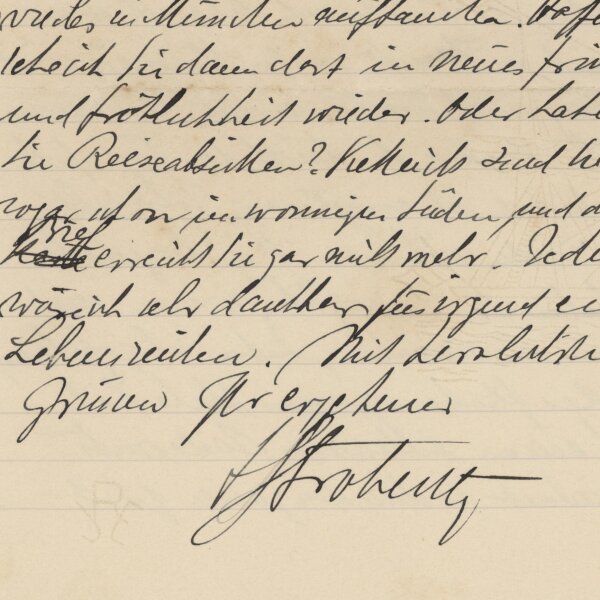 wieder in München auftauchen. Hoff
schenkt Sie dann dort in neues Fri
und Fröhlichkeit wieder. Oder habe
Sie Reiseabsichten? Vielleicht sind
sogar schon im wonnigen Süden und
Brief erreicht Sie gar nicht mehr. Jede
wär ich sehr dankbar für irgend ein
Lebenszeichen. Mit herzlichsten
Grüßen Ihr ergebener